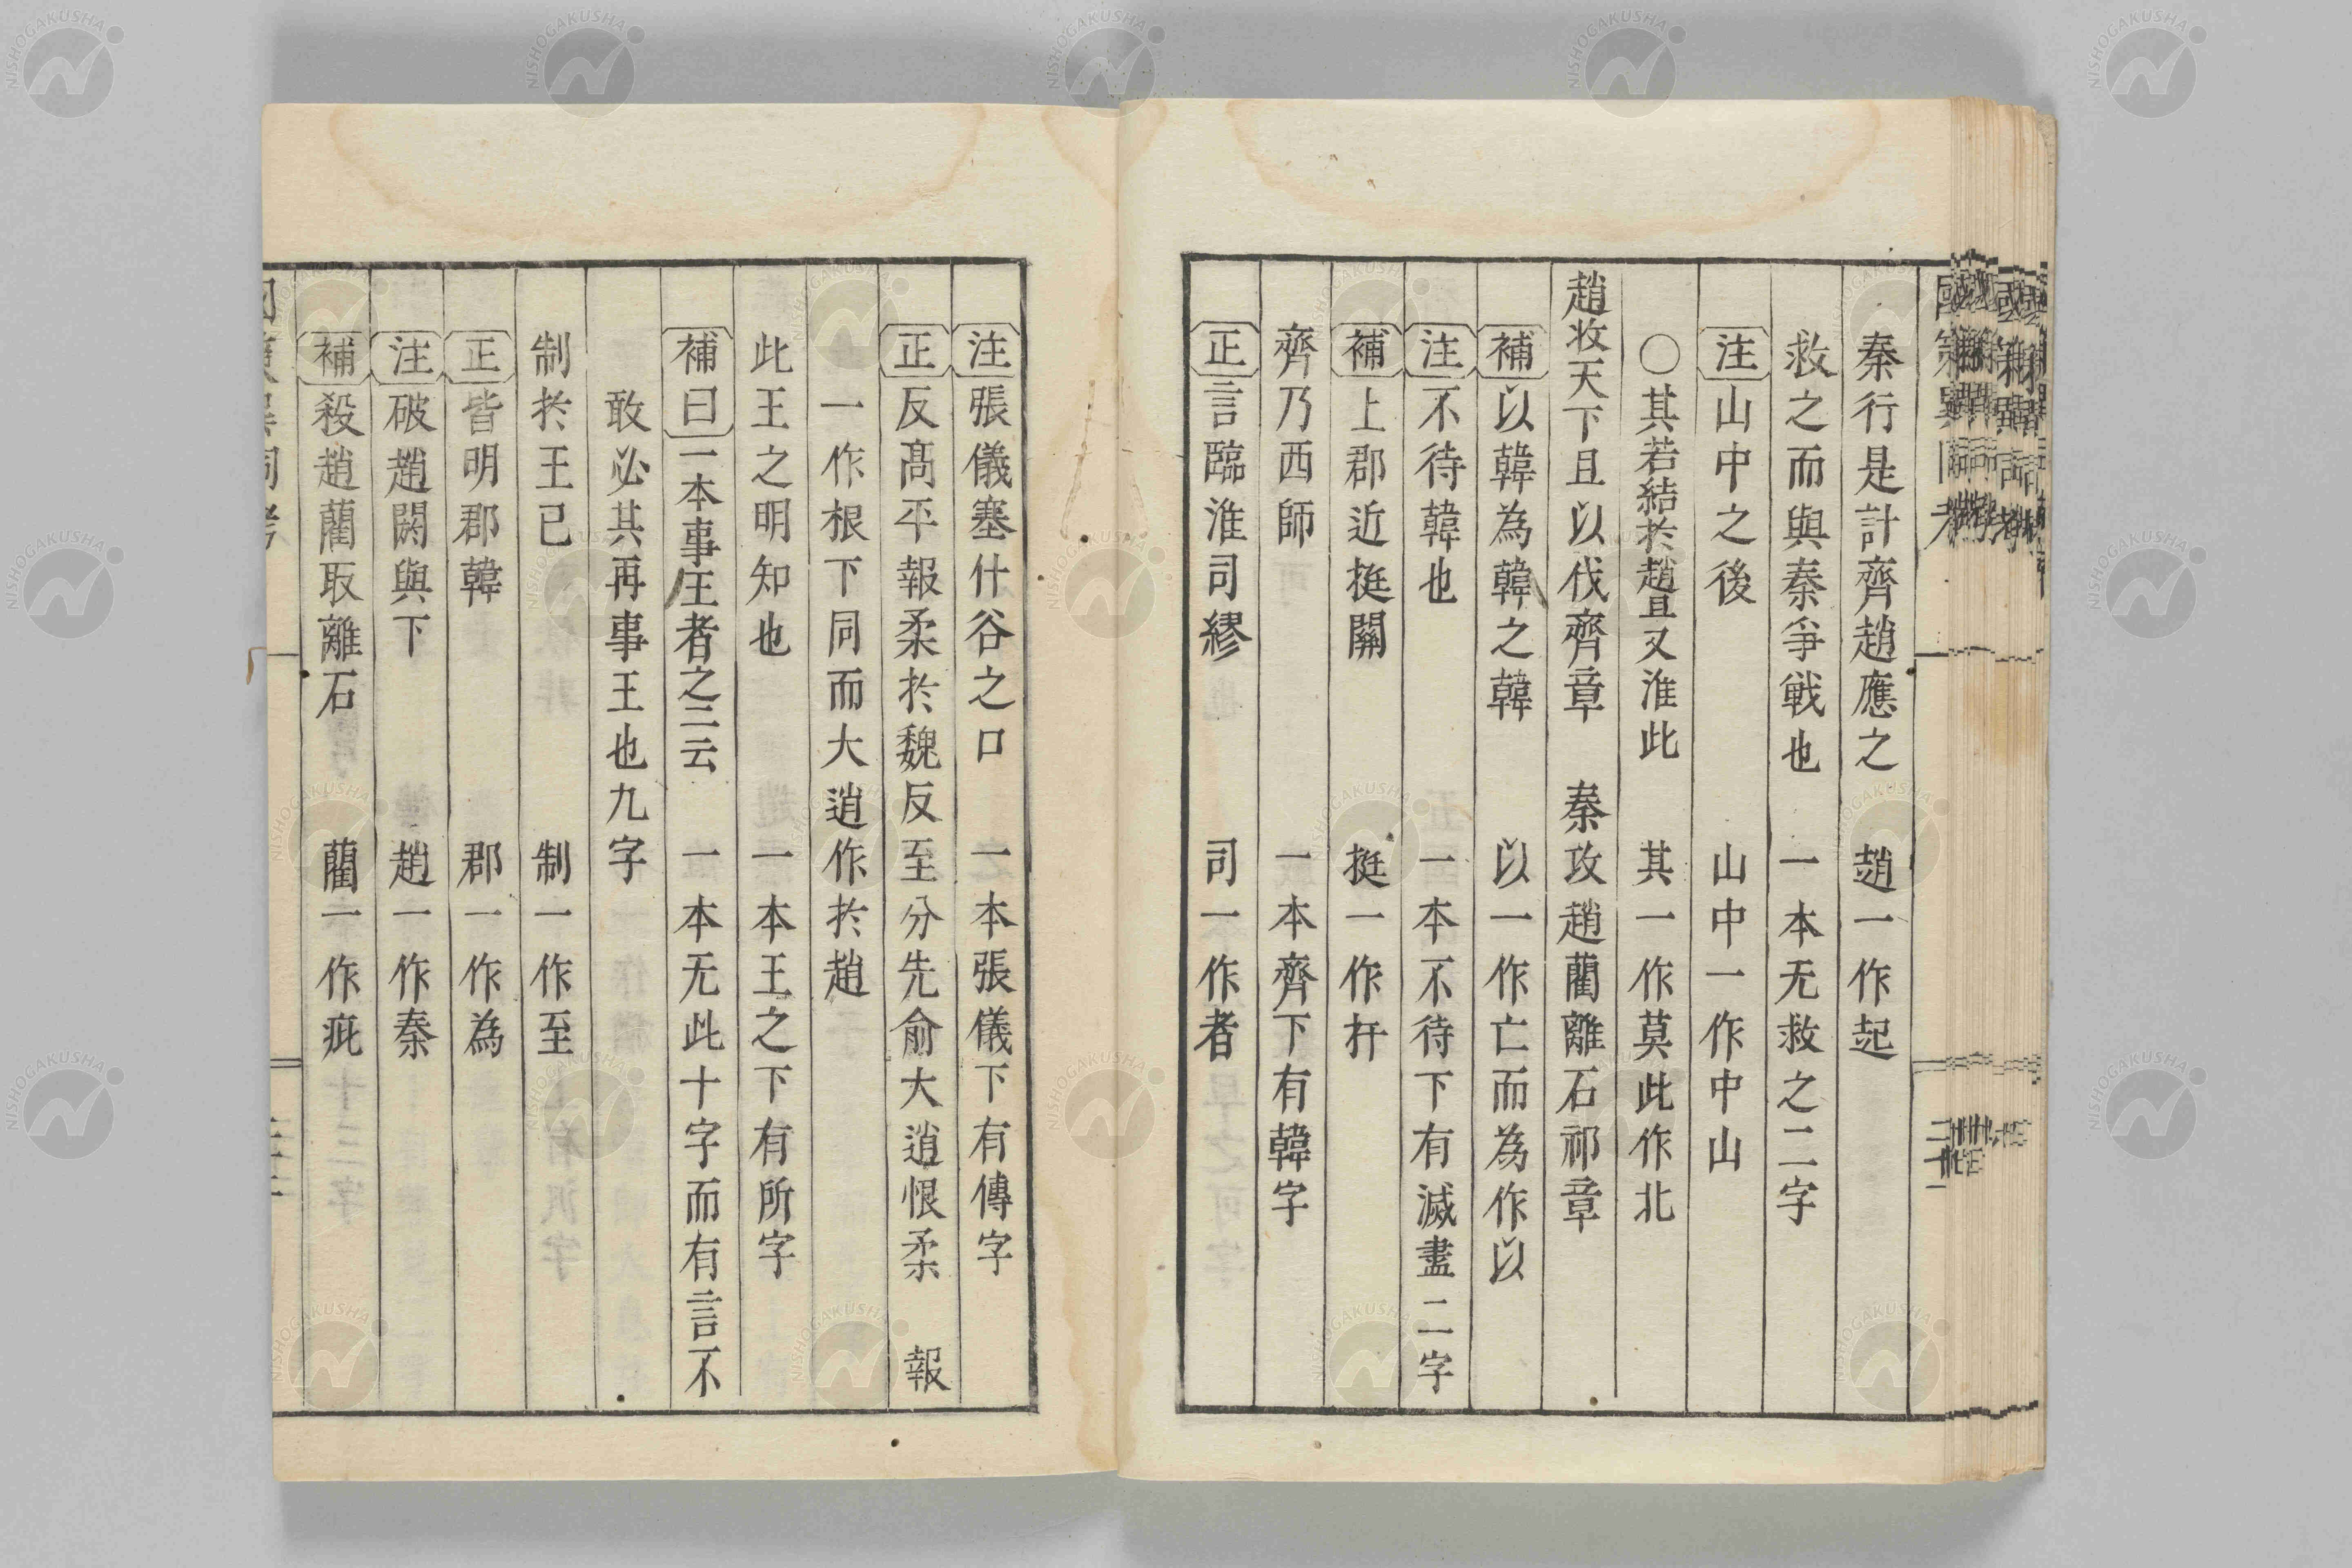 秦行是計齊趙應之　趙一作起
救之而與秦爭戰也　一本无救之二字
注山中之後　山中一作中山
〇其若結於趙且又淮此　其一作莫此作北
趙收天下且以伐齊章　秦攻趙藺離石祁章
補以韓為韓之韓　以一作亡而為作以
注不待韓也　一本不待下有滅盡二字
補上郡近挺關　挺一作扞
齊乃西師　一本齊下有韓字
正言臨淮司繆　司一作者
注張儀塞什谷之口　一本張儀下有傳字
正反高平報柔於魏反至分先俞大逍恨柔　報
一作根下同而大逍作於趙
此王之明知也　一本王之下有所字
補曰一本事王者之三云　一本无此十字而有言不
敢必其再事王也九字
制於王已　制一作至
正皆明郡韓　郡一作為
注破趙閼與下　趙一作秦
補殺趙藺取離石　藺一作疵